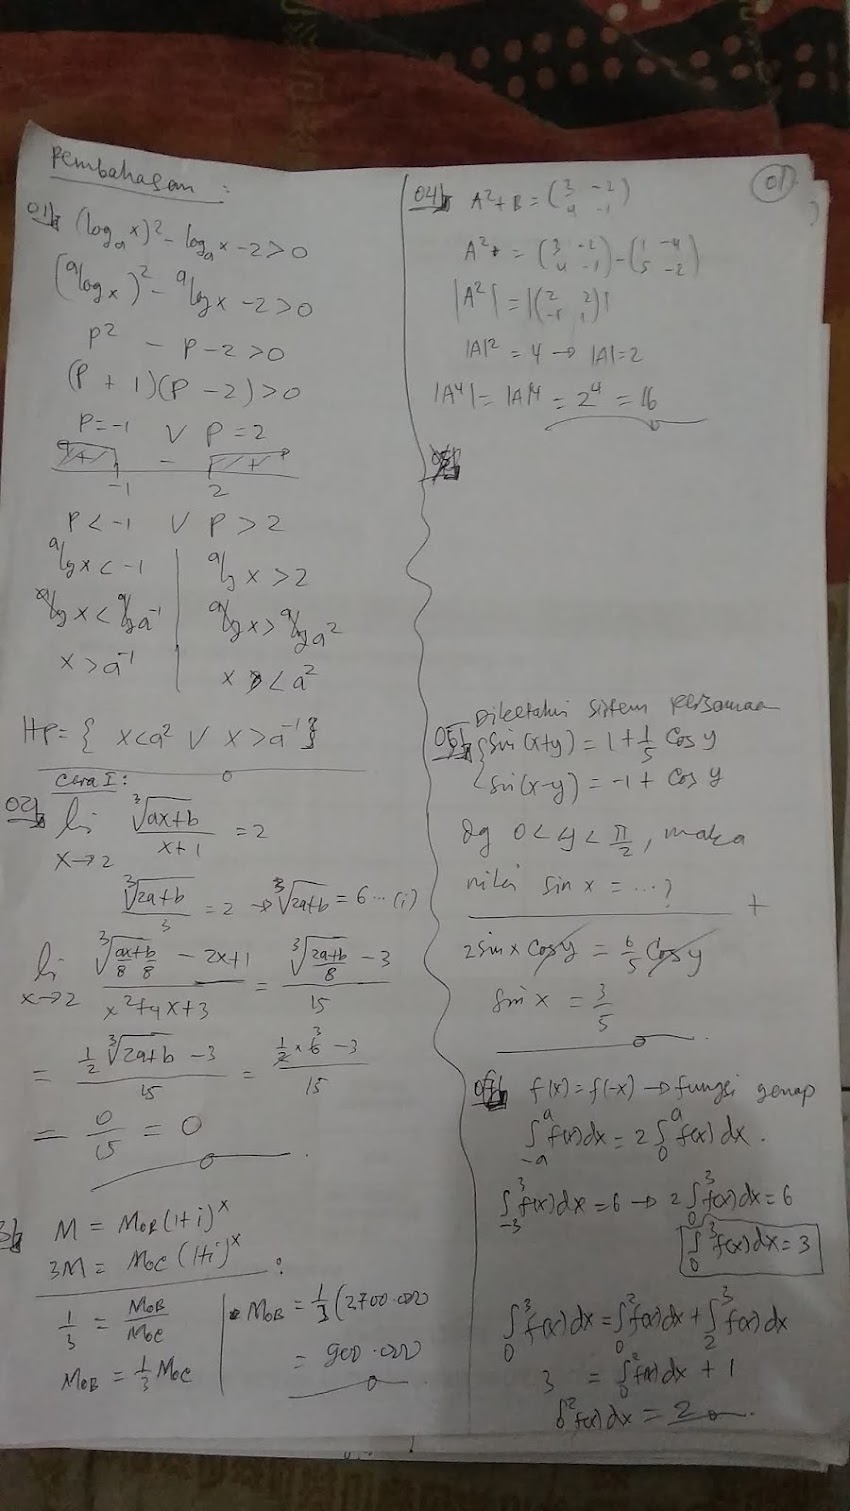 Pembahasan :
01) (log_a x)² - log_a x - 2 > 0
(ᵃlog x)² - ᵃlog x - 2 > 0
p² - p - 2 > 0
(p + 1)(p - 2) > 0
p = -1 ∨ p = 2
+ - +
-1 2
p < -1 ∨ p > 2
ᵃlog x < -1 | ᵃlog x > 2
ᵃlog x < ᵃlog a⁻¹ | ᵃlog x > ᵃlog a²
x > a⁻¹ | x < a²
HP = { x < a² ∨ x > a⁻¹ }
Cara I :
02) lim x→2 ∛(ax+b) / (x+1) = 2
∛(2a+b) / 3 = 2 → ∛(2a+b) = 6 ... (i)
lim x→2 (∛(ax/8 + b/8) - 2x+1) / (x²+4x+3) = (∛((2a+b)/8) - 3) / 15
= (½ ∛(2a+b) - 3) / 15 = (½ × 6 3 - 3) / 15
= 0/15 = 0
3) M = MOB (1+i)ˣ
3M = MOC (1+i)ˣ :
1/3 = MOB/MOC
MOB = 1/3 MOC
MOB = 1/3 (2.700.000)
= 900.000
01
04) A² + B = (3 -2 / 4 -1)
A² = (3 -2 / 4 -1) - (1 -4 / 5 -2)
|A²| = |(2 2 / -1 1)|
|A|² = 4 → |A| = 2
|A⁴| = |A|⁴ = 2⁴ = 16
05) Diketahui sistem persamaan
{ sin (x+y) = 1 + 1/5 cos y
sin (x-y) = -1 + cos y
dg 0 < y < π/2, maka
nilai sin x = ... ?
+
2 sin x cos y = 6/5 cos y
sin x = 3/5
f(x) = f(-x) → fungsi genap
∫₋ₐᵃ f(x) dx = 2 ∫₀ᵃ f(x) dx.
∫₋₃³ f(x) dx = 6 → 2 ∫₀³ f(x) dx = 6
∫₀³ f(x) dx = 3
∫₀³ f(x) dx = ∫₀² f(x) dx + ∫₂³ f(x) dx
3 = ∫₀² f(x) dx + 1
∫₀² f(x) dx = 2